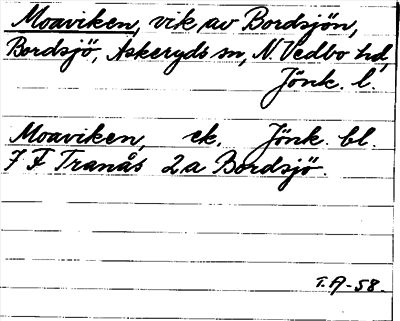 Moaviken, vik av Bordsjön,
Bordsjö, Askeryds sn, N. Vedbo hd,
Jönk. l.
Moaviken, ek. Jönk. bl.
7 F Tranås 2a Bordsjö.
T.A-58.